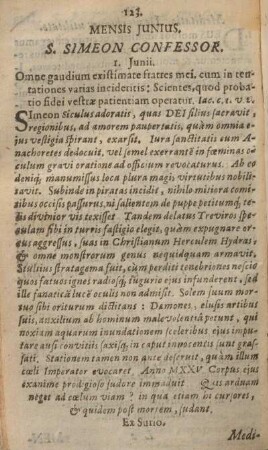 123.
MENSIS JUNIUS.
S. SIMEON CONFESSOR.
1. Junii.
Omne gaudium existimate fratres mei, cum in ten-
tationes varias incideritis: Scientes, quod proba-
tio fidei vestræ patientiam operatur. Iac. c. 1. v 2.
SImeon Siculus adoratis, quas DEI filius sacravit
, regionibus, ad amorem paupertatis, quàm omnia e-
jus vestigia spirant, exarsit, Iura sanctitatis cum A-
nachoretes dedocuit, vel semel exerrante in fœminas o-
culum gravi oratione ad officium revocaturus. Ab co
denóq; manumissus loca plura magis virtutibus nobili-
tavit. Subinde in piratas incidit, nihilo mitiora comi-
tibus occisis passurus, ni salientem de puppe petitumq; te-
lis divinior vis texisset Tandem delatus Treviros spe-
culam sibi in turris fastigio elegit, quàm expugnare or-
cus aggressus, suas in Christianum Herculem Hydras,
& omne monstrorum genus nequidquam armavit,
Stultius stratagema fuit, cum perditi tenebriones nescio
quos fatuosignes radiosq; fugurio ejus infunderent, sed
ille fanaticâ lucê oculis non admisit. Solem suum mor-
tuo sibi oriturum dictitans: Dæmones, elusis artibus
suis, auxilium ab hominum malevolentiâ petunt, qui
noxiam aquarum inundationem sceleribus ejus impu-
tare ausi convitiis saxisq; in caput innocentis sunt gras-
sati. Stationem tamen non ante deseruit, quàm illum
cœli Imperator evocaret. Anno MXXXV Corpus ejus
exanime prodigioso judare immaduit Quis arduam
neget ad cœlum viam? in qua etiam hi cursores,
& quidem post mortem, sudant.
Ex Surio.
Medi-